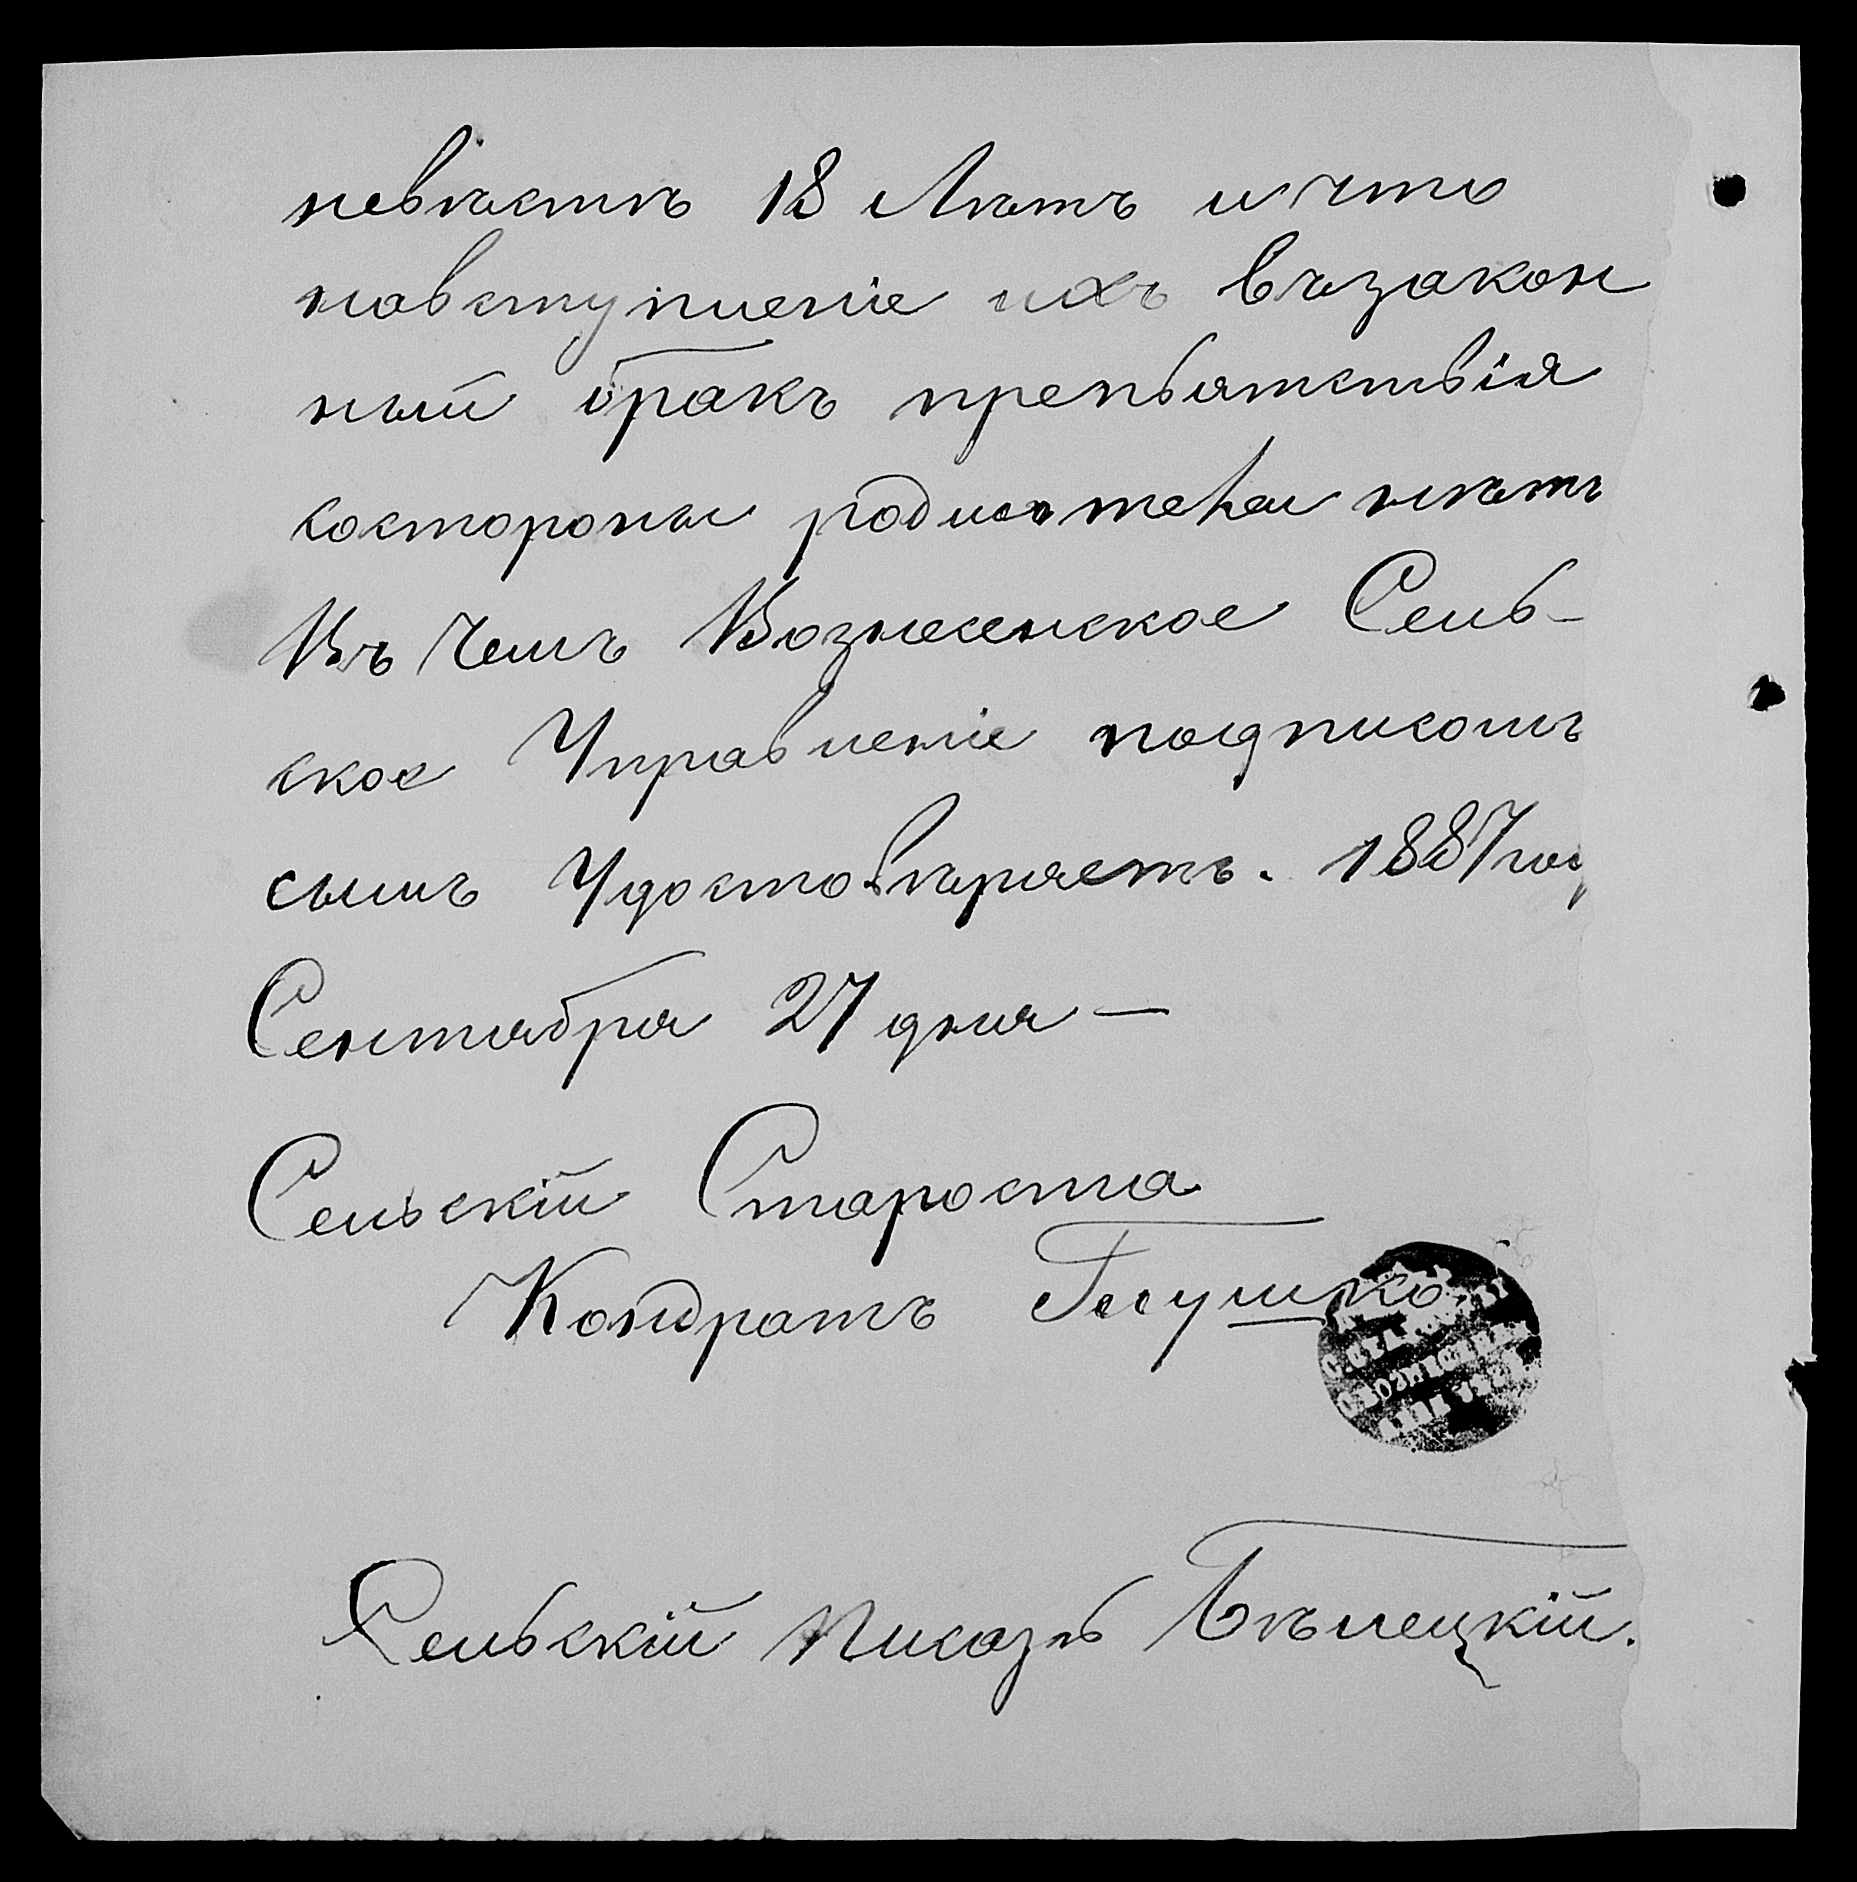 невѣстѣ 18 Лѣтъ и что
навступленіе ихъ Възакон
ный бракъ препьятствія
состороны родителеи нѣтъ
Въ Чемъ Вознесенское Сель-
ское Управленіе подписомъ
симъ Удостовѣряетъ. 1887 год
Сентабра 27 дния —
Сельскій Староста
Кондратъ Глушко
Сельскій Писарь Бѣлецкій.